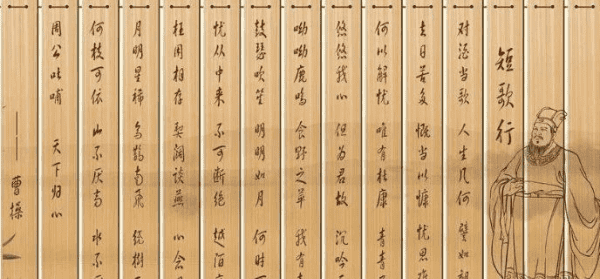 短歌行
对酒当歌 人生几何 譬如
去日苦多 慨当以慷 忧思
何以解忧 唯有杜康 青青
悠悠我心 但为君故 沉吟
呦呦鹿鸣 食野之苹 我有
鼓瑟吹笙 明明如月 何时
忧从中来 不可断绝 越陌
枉用相存 契阔谈燕 心念
月明星稀 乌鹊南飞 绕树
何枝可依 山不厌高 水不
周公吐哺 天下归心
——曹操